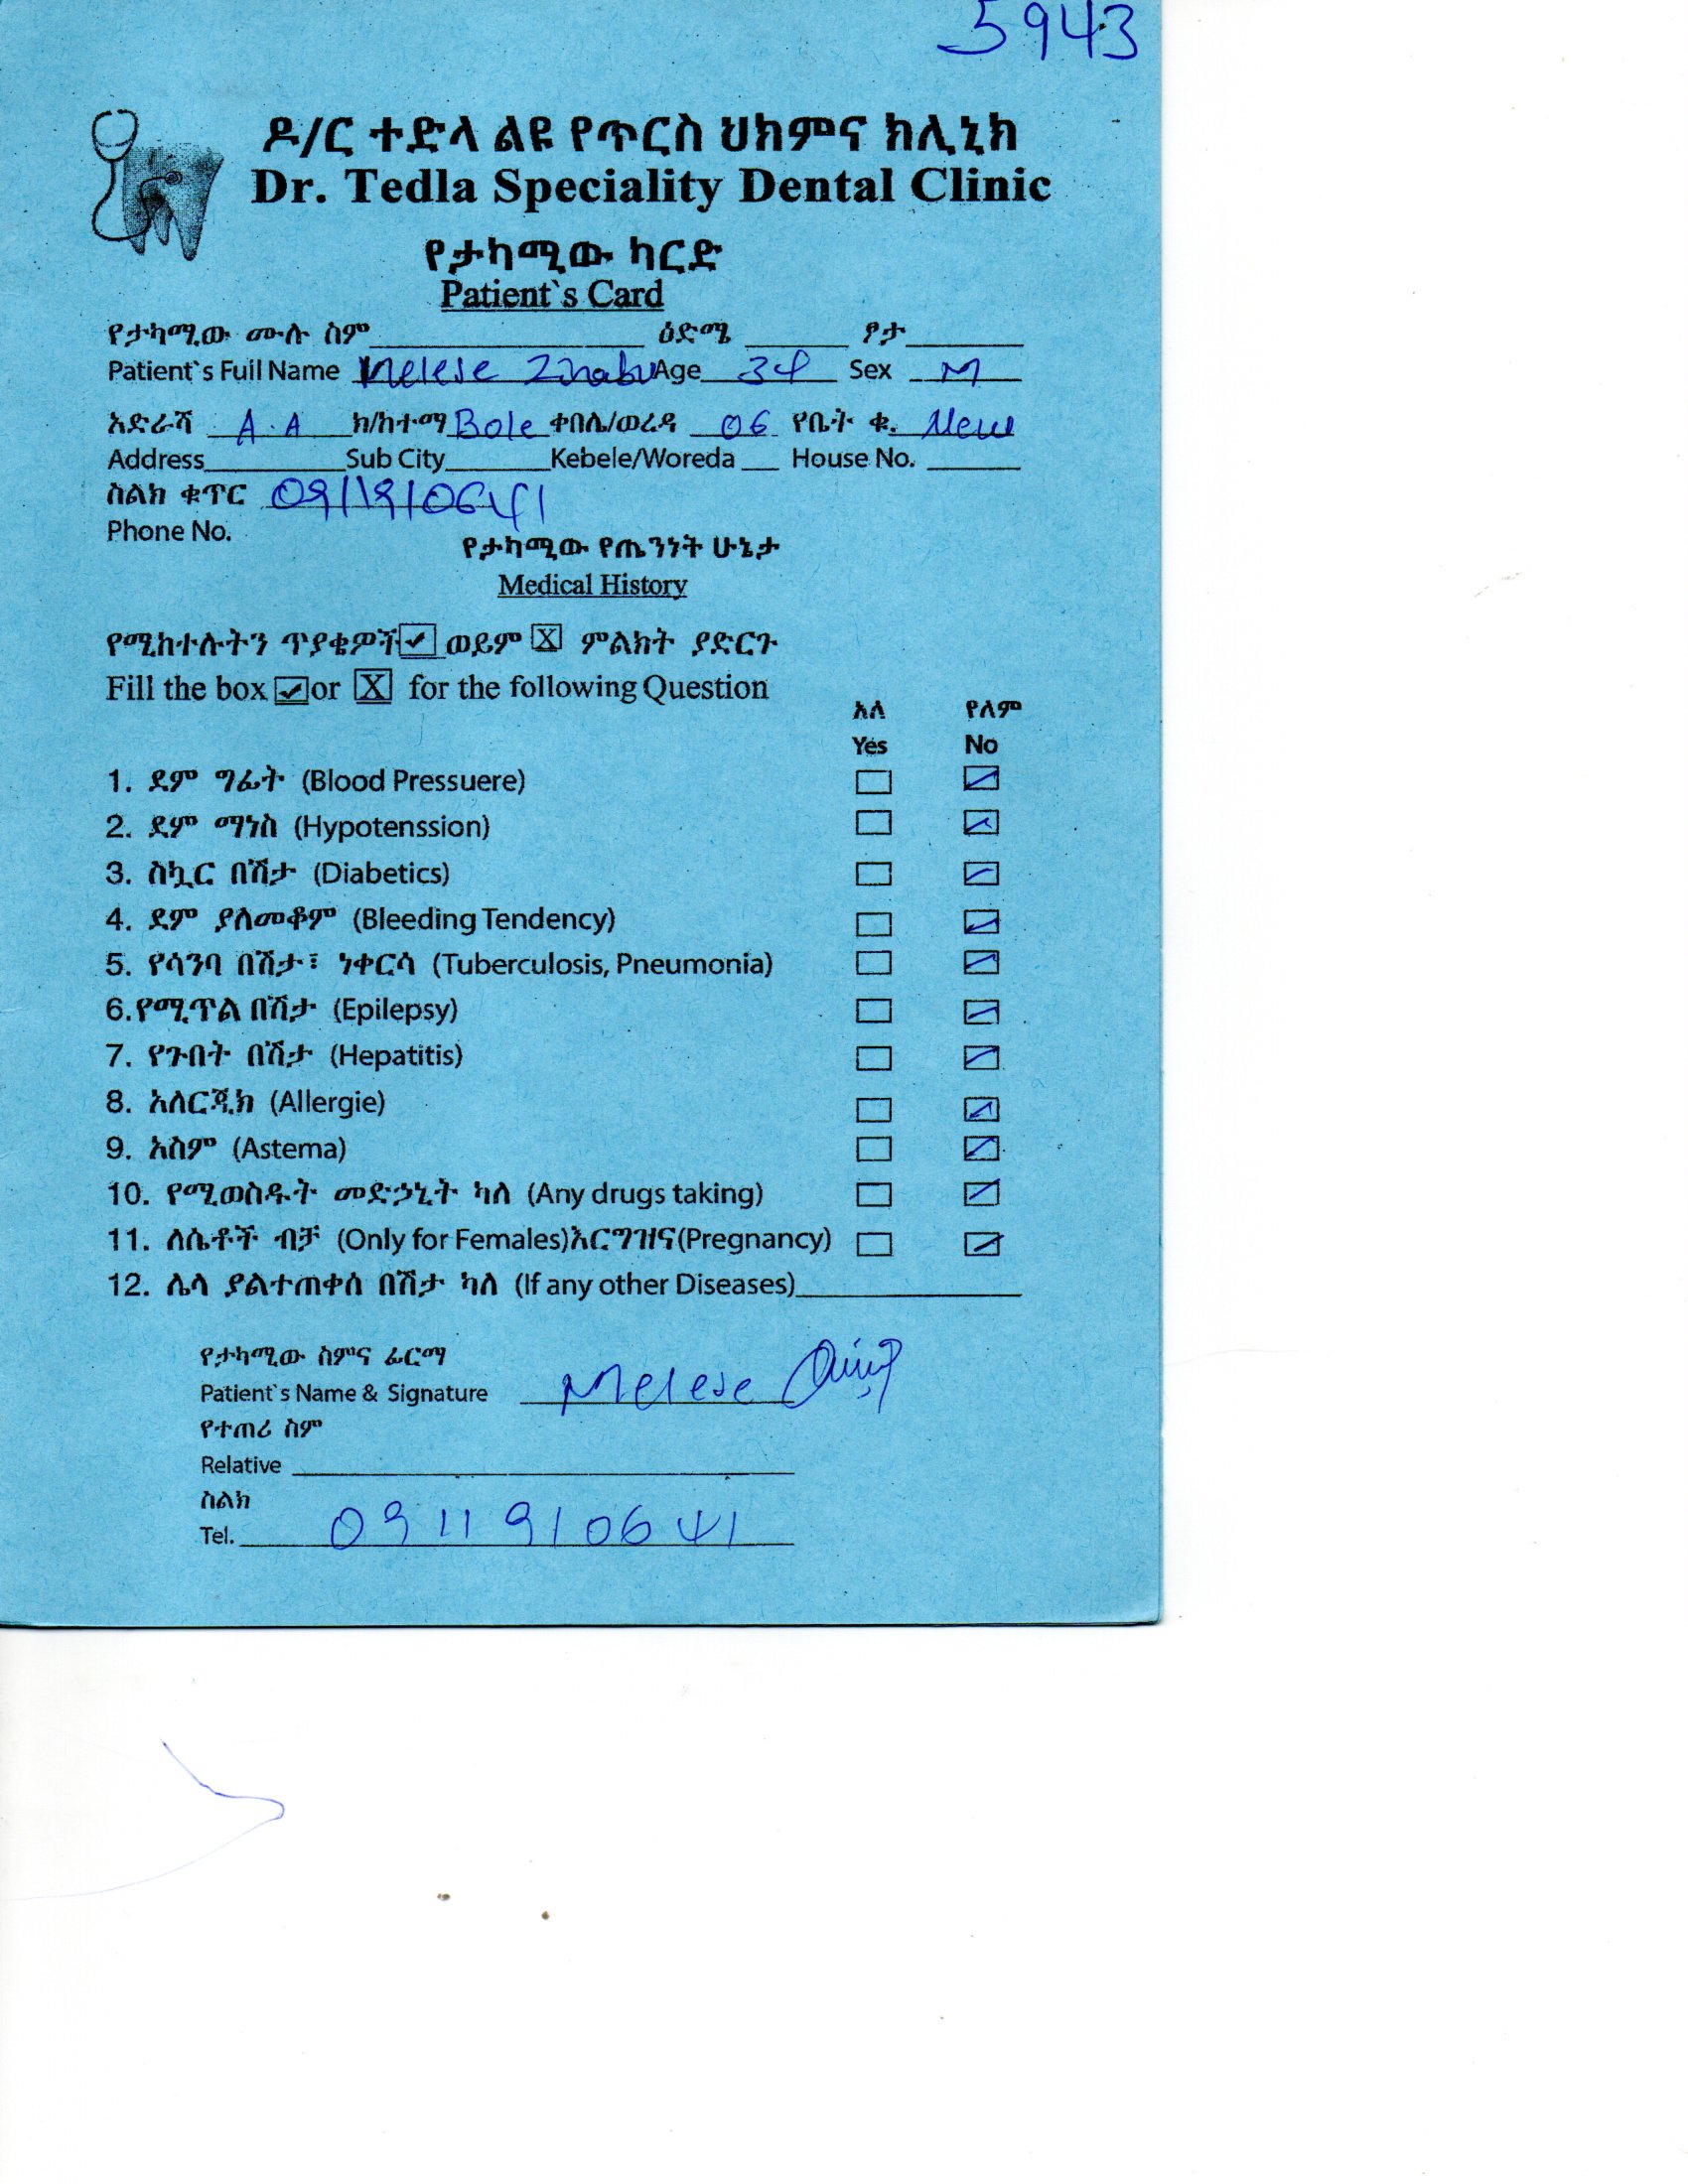 5943
ዶ/ር ተድላ ልዩ የጥርስ ህክምና ክሊኒክ
Dr. Tedla Speciality Dental Clinic
የታካሚው ካርድ
Patient`s Card
የታካሚው ሙሉ ስም ዕድሜ ፆታ
Patient`s Full Name Melese Zinabu Age 34 Sex M
አድራሻ A.A ክ/ከተማ Bole ቀበሌ/ወረዳ 06 የቤት ቁ. New
Address Sub City Kebele/Woreda House No.
ስልክ ቁጥር 0911910641
Phone No.
የታካሚው የጤንነት ሁኔታ
Medical History
የሚከተሉትን ጥያቄዎች ✓ ወይም X ምልክት ያድርጉ
Fill the box ✓ or X for the following Question
አለ የለም
Yes No
1. ደም ግፊት (Blood Pressuere)
2. ደም ማነስ (Hypotenssion)
3. ስኳር በሽታ (Diabetics)
4. ደም ያለመቆም (Bleeding Tendency)
5. የሳንባ በሽታ፣ ነቀርሳ (Tuberculosis, Pneumonia)
6.የሚጥል በሽታ (Epilepsy)
7. የጉበት በሽታ (Hepatitis)
8. አለርጂክ (Allergie)
9. አስም (Astema)
10. የሚወስዱት መድኃኒት ካለ (Any drugs taking)
11. ለሴቶች ብቻ (Only for Females)እርግዝና(Pregnancy)
12. ሌላ ያልተጠቀሰ በሽታ ካለ (If any other Diseases)
የታካሚው ስምና ፊርማ
Patient`s Name & Signature Melese
የተጠሪ ስም
Relative
ስልክ
Tel. 0911910641